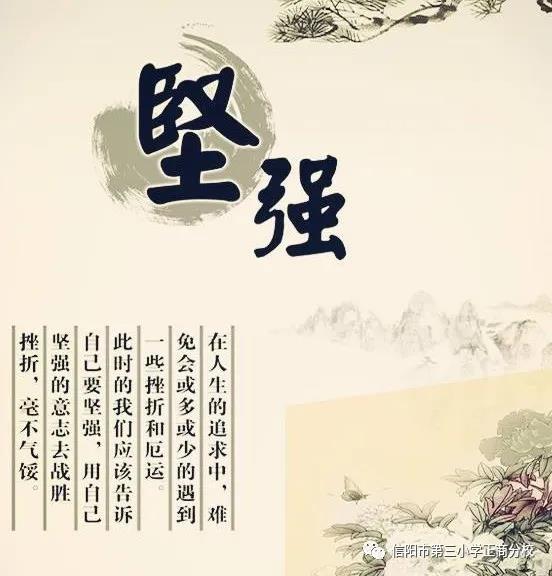 堅
强
在人生的追求中，难
免会或多或少的遇到
一些挫折和厄运。
此时的我们应该告诉
自己要坚强，用自己
坚强的意志去战胜
挫折，毫不气馁。
信阳市第三小学正商分校